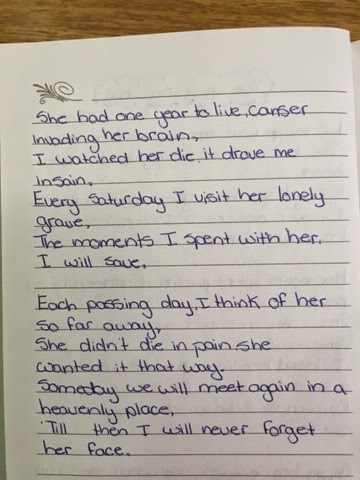 She had one year to live, canser
invading her brain,
I watched her die it drove me
insain.
Every Saturday I visit her lonely
grave,
The moments I spent with her,
I will save,
Each passing day, I think of her
so far away,
She didn't die in pain she
wanted it that way.
Someday we will meet again in a
heavenly place,
'Till then I will never forget
her face.